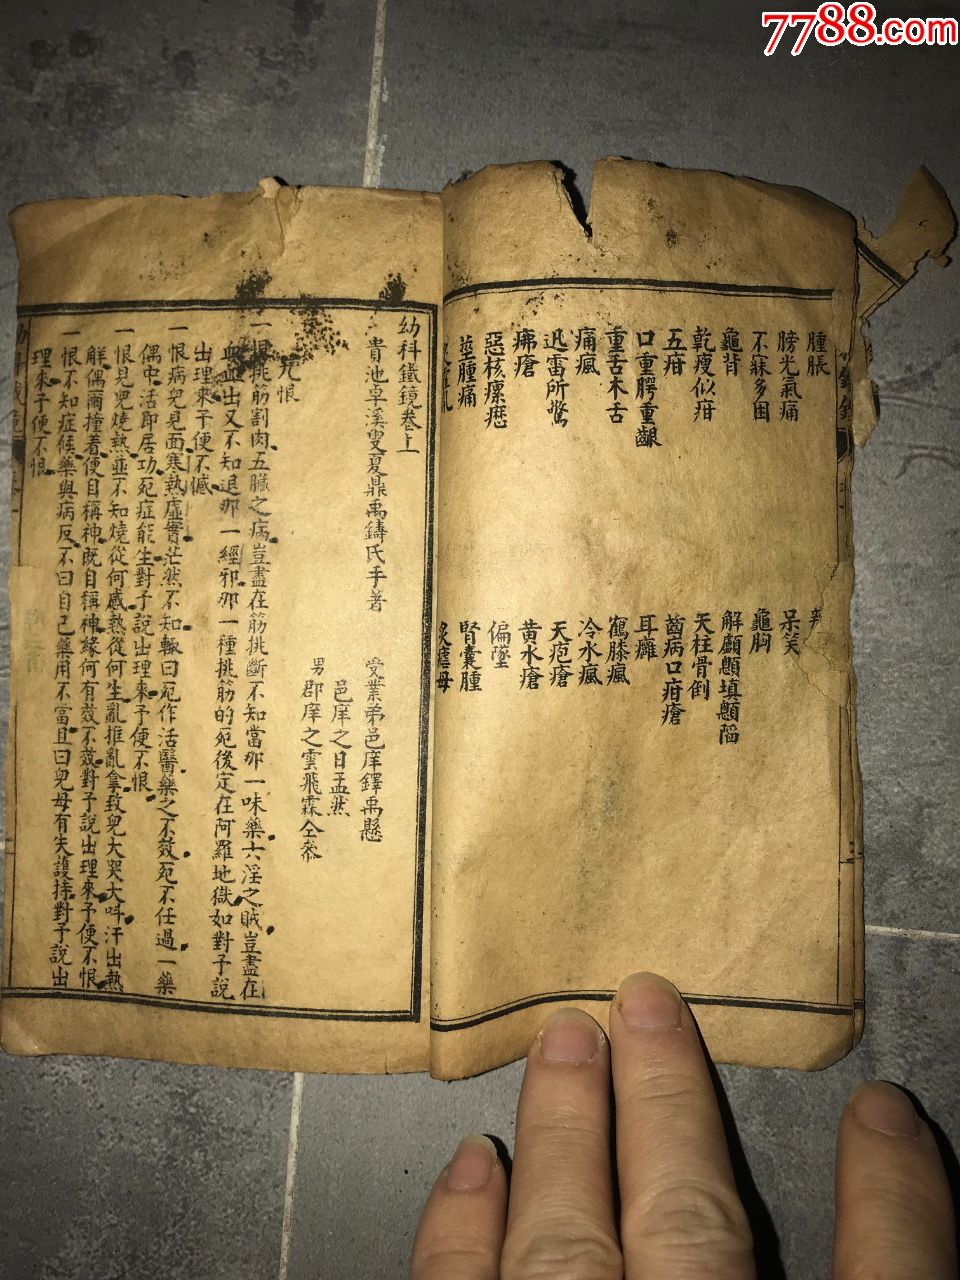 7788.com
腫脹
膀光氣痛
不寐多困
龜背
乾瘦似疳
五疳
口重腭重齦
重舌木舌
痛瘋
迅雷所驚
疿瘡
惡核瘰癧
莖腫痛
呆笑
龜胸
解顱顖填顖陷
天柱骨倒
齒病口疳瘡
耳癰
鶴膝瘋
冷水瘋
天疱瘡
黃水瘡
偏墜
腎囊腫
幼科鐵鏡卷上
貴池卓溪叟夏鼎禹鑄氏手著
受業弟邑庠鐸禹懸
邑庠之日孟然
男郡庠之雲飛霖仝參
九恨
一恨挑筋割肉五臟之病豈盡在筋挑斷不知當那一味藥六淫之賊豈盡在
血血出又不知退那一經邪那一種挑筋的死後定在阿羅地獄如對予說
出理來予便不憾
一恨病兒見面寒熱虛實茫然不知輒曰死作活醫藥之不效死不任過一藥
偶中活即居功死症能生對予說出理來予便不恨
一恨見兒燒熱並不知燒從何感熱從何生亂推亂拿致兒大哭大呌汗出熱
解偶爾撞着便自稱神既自稱神緣何有效不效對予說出理來予便不恨
一恨不知症候藥與病反不曰自己藥用不當且曰兒母有失護持對予說出
理來予便不恨